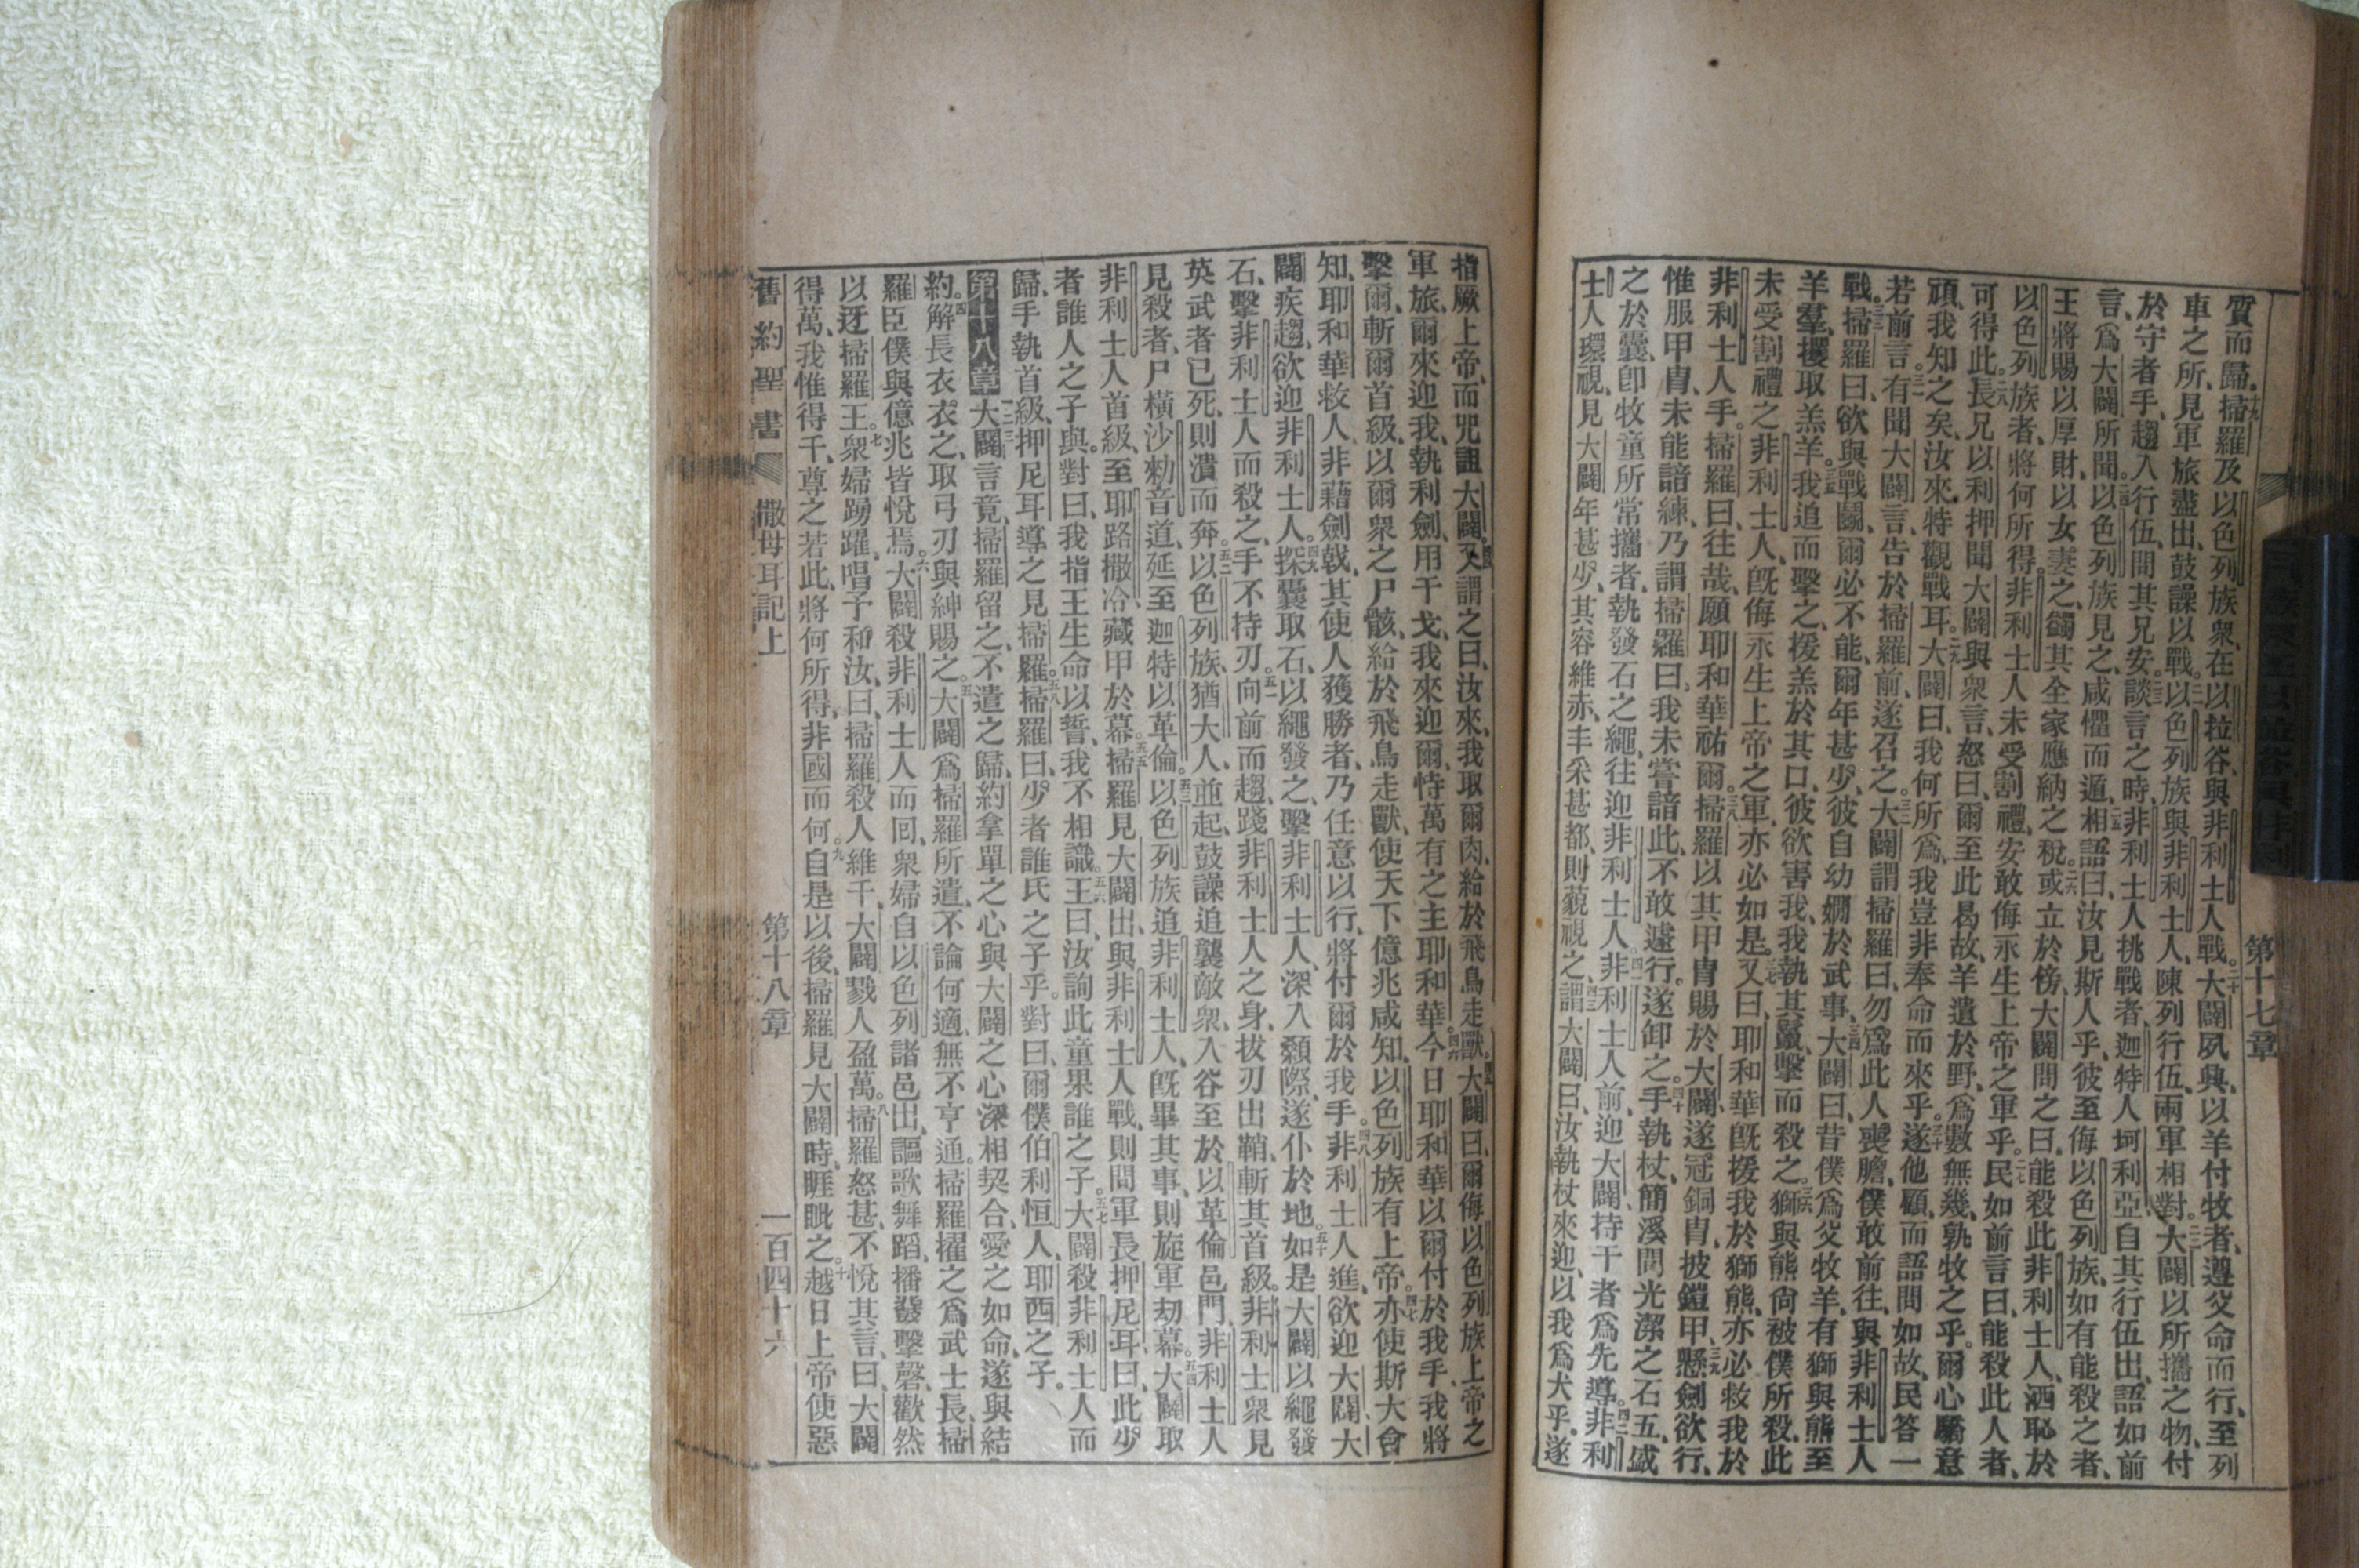 質而歸、十九掃羅及以色列族衆、在以拉谷、與非利士人戰。二十大闢夙興、以羊付牧者、遵父命而行、至列
車之所、見軍旅盡出、鼓譟以戰。二一以色列族與非利士人、陳列行伍、兩軍相對。二二大闢以所攜之物、付
於守者手、趨入行伍、問其兄安。二三談言之時、非利士人挑戰者、迦特人坷利亞、自其行伍出、語如前
言、爲大闢所聞。二四以色列族見之、咸懼而遁、二五相語曰、汝見斯人乎、彼至侮以色列族、如有能殺之者、
王將賜以厚財、以女妻之、蠲其全家應納之稅。二六或立於傍、大闢問之曰、能殺此非利士人、洒恥於
以色列族者、將何所得、非利士人未受割禮、安敢侮永生上帝之軍乎。二七民如前言曰、能殺此人者、
可得此。二八長兄以利押聞大闢與衆言、怒曰、爾至此曷故、羊遺於野、爲數無幾、孰牧之乎。爾心驕意
頑、我知之矣、汝來、特觀戰耳。二九大闢曰、我何所爲、我豈非奉命而來乎。三十遂他顧而語、問如故、民答一
若前言。三一有聞大闢言、告於掃羅前、遂召之。三二大闢謂掃羅曰、勿爲此人喪膽、僕敢前往、與非利士人
戰。三三掃羅曰、欲與戰鬭、爾必不能、爾年甚少、彼自幼嫺於武事。三四大闢曰、昔僕爲父牧羊、有獅與熊至
羊羣、攫取羔羊。三五我追而擊之、援羔於其口、彼欲害我、我執其鬣、擊而殺之。三六獅與熊尙被僕所殺、此
未受割禮之非利士人、旣侮永生上帝之軍、亦必如是。三七又曰、耶和華旣援我於獅熊、亦必救我於
非利士人手。掃羅曰、往哉、願耶和華祐爾。三八掃羅以其甲冑賜於大闢、遂冠銅冑、披鎧甲、三九懸劍欲行、
惟服甲冑、未能諳練、乃謂掃羅曰、我未嘗諳此、不敢遽行。遂卸之。四十手執杖、簡溪間光潔之石五、盛
之於囊、卽牧童所常攜者、執發石之繩、往迎非利士人。四一非利士人前、迎大闢、持干者爲先導。四二非利
士人環視、見大闢年甚少、其容維赤、丰采甚都、則藐視之、四三謂大闢曰、汝執杖來迎、以我爲犬乎。遂
第十七章
指厥上帝、而咒詛大闢。四四又謂之曰、汝來、我取爾肉、給於飛鳥走獸。四五大闢曰、爾侮以色列族上帝之
軍旅、爾來迎我、執利劍、用干戈、我來迎爾、恃萬有之主耶和華。四六今日耶和華以爾付於我手、我將
擊爾、斬爾首級、以爾衆之尸骸、給於飛鳥走獸、使天下億兆咸知、以色列族有上帝。四七亦使斯大會
知、耶和華救人、非藉劍戟、其使人獲勝者、乃任意以行、將付爾於我手。四八非利士人進、欲迎大闢、大
闢疾趨、欲迎非利士人。四九探囊取石、以繩發之、擊非利士人、深入顙際、遂仆於地。五十如是大闢以繩發
石、擊非利士人而殺之、手不持刃。五一向前而趨、踐非利士人之身、拔刃出鞘、斬其首級。非利士衆見
英武者已死、則潰而奔。五二以色列族、猶大人、並起、鼓譟追襲敵衆、入谷至於以革倫邑門、非利士人
見殺者、尸橫沙勑音道、延至迦特以革倫。五三以色列族追非利士人、旣畢其事、則旋軍刧幕。五四大闢取
非利士人首級、至耶路撒冷、藏甲於幕。五五掃羅見大闢出、與非利士人戰、則問軍長押尼耳曰、此少
者誰人之子與。對曰、我指王生命以誓、我不相識。五六王曰、汝詢此童果誰之子。五七大闢殺非利士人而
歸、手執首級、押尼耳導之見掃羅。五八掃羅曰、少者誰氏之子乎。對曰、爾僕伯利恒人、耶西之子。
第十八章 大闢言竟、掃羅留之、不遣之歸、約拿單之心與大闢之心、深相契合、愛之如命、遂與結
約。四解長衣衣之、取弓刃與紳賜之。五大闢爲掃羅所遣、不論何適、無不亨通。掃羅擢之爲武士長、掃
羅臣僕與億兆皆悅焉。六大闢殺非利士人而回、衆婦自以色列諸邑出、謳歌舞蹈、播鼗擊磬、歡然
以迓掃羅王。七衆婦踴躍、唱予和汝、曰、掃羅殺人維千、大闢戮人盈萬。八掃羅怒甚、不悅其言、曰、大闢
得萬、我惟得千、尊之若此、將何所得、非國而何。九自是以後、掃羅見大闢時、睚眦之。十越日上帝使惡
舊約聖書 撒母耳記上 第十八章 一百四十六